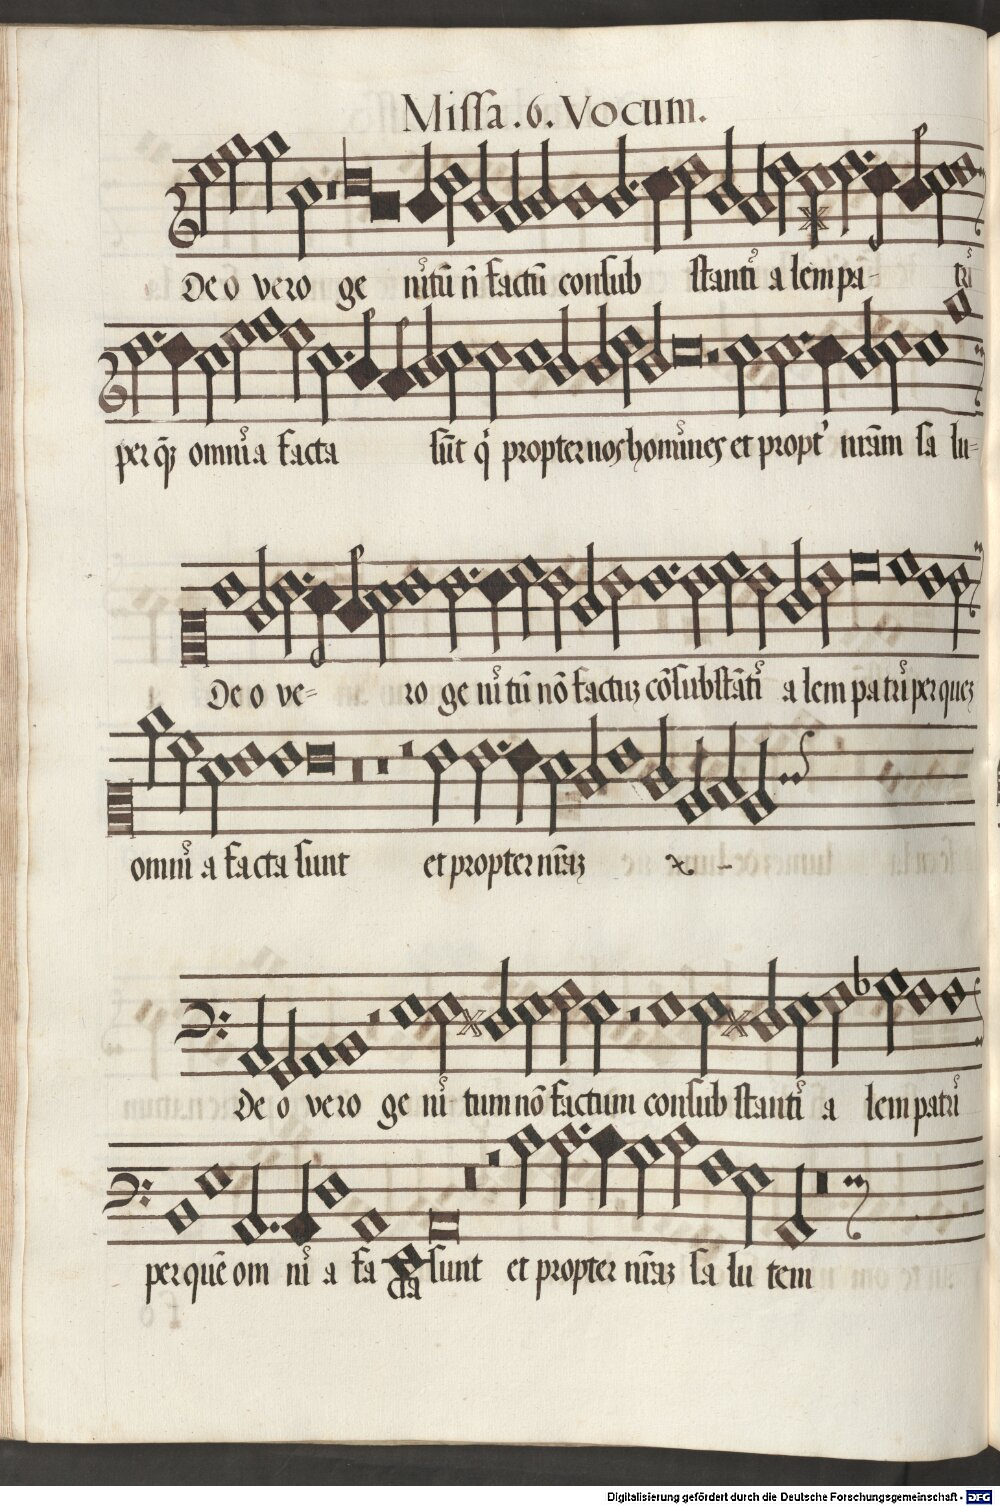 Missa .6. Vocum.
De o vero ge nitū nō factū consub stanti a lem pa- tri
per quē omnia facta sūt qui propter nos homines et propt' nrām sa lu-
De o ve= ro ge ni tū nō factuz cōsubstāti a lem pa tri per quez
omni a facta sunt et propter nrāz
De o vero ge ni tum nō factum consub stanti a lem patri
per quē om ni a fa cta sunt et propter nrāz sa lu tem
Digitalisierung gefördert durch die Deutsche Forschungsgemeinschaft - DFG